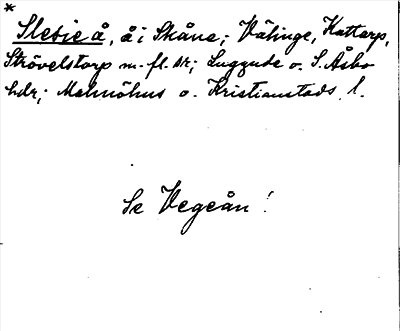 * Slesje å, å i Skåne; Välinge, Kattarp,
Strövelstorp m. fl. sr; Luggude o. S. Åsbo
hdr; Malmöhus o. Kristianstads l.
Se Vegeån!